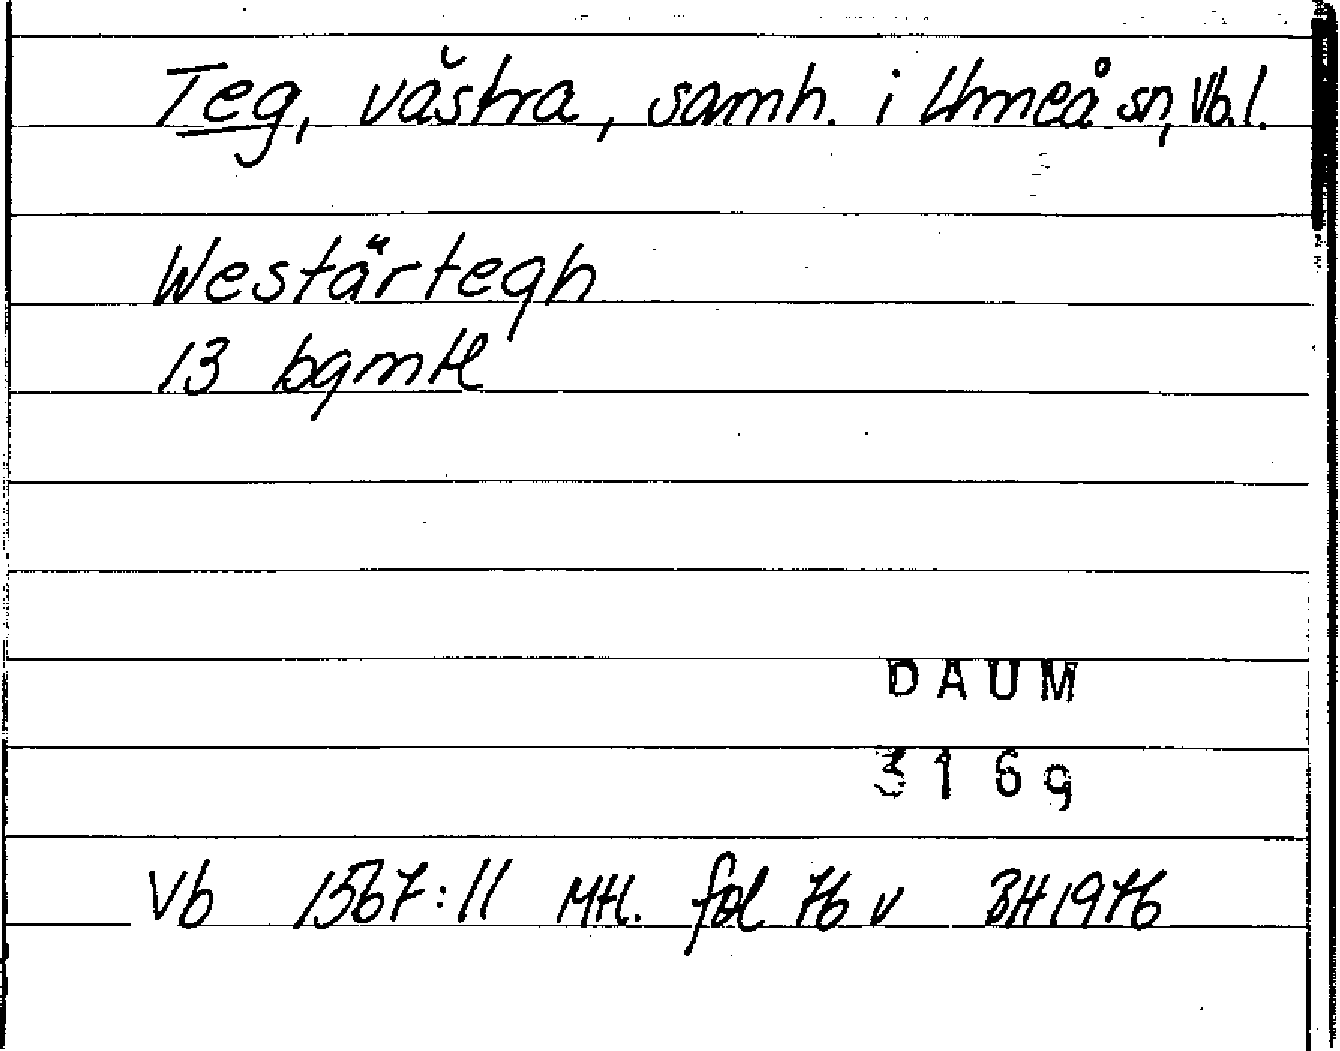 Teg, västra, samh. i Umeå sn, Vb.l.
Westärtegh
13 bgmtl
DAUM
3169
Vb 1567:11 Mtl. fol 76 v BH 1976